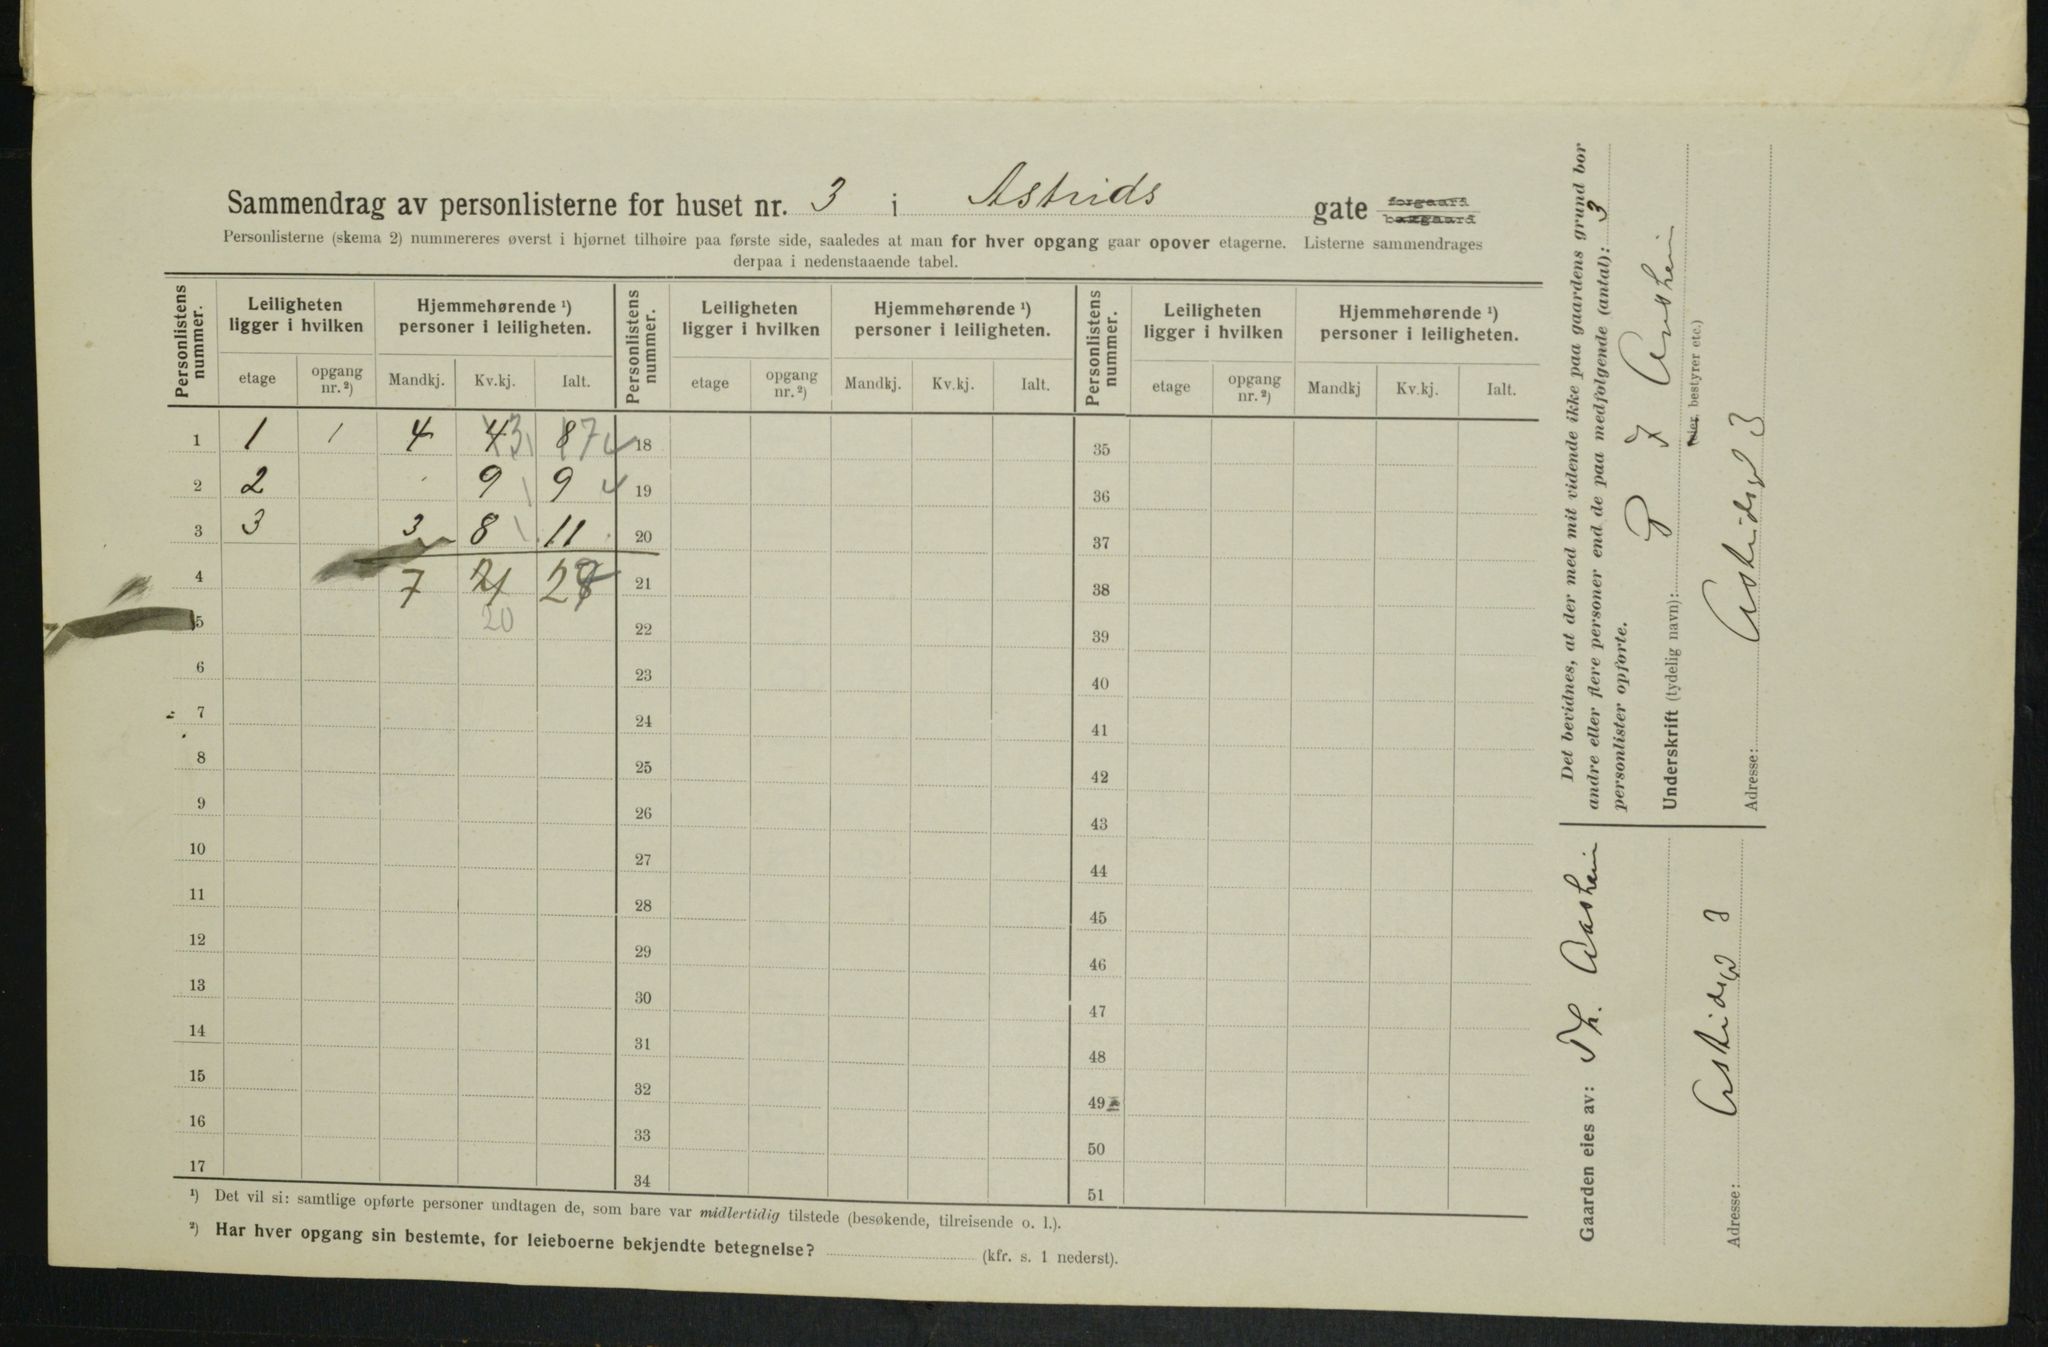 Sammendrag av personlisterne for huset nr. 3 i Astrids gate forgaard bakgaard
Personlisterne (skema 2) nummereres øverst i hjørnet tilhøire paa første side, saaledes at man for hver opgang gaar opover etagerne. Listerne sammendrages
derpaa i nedenstaaende tabel.
Personlistens nummer. Leiligheten ligger i hvilken Hjemmehørende ¹) personer i leiligheten. Personlistens nummer. Leiligheten ligger i hvilken Hjemmehørende ¹) personer i leiligheten. Personlistens nummer. Leiligheten ligger i hvilken Hjemmehørende ¹) personer i leiligheten.
etage opgang nr. ²) Mandkj. Kv.kj. Ialt. etage opgang nr. ²) Mandkj. Kv.kj. Ialt. etage opgang nr. ²) Mandkj Kv.kj. Ialt.
1 1 1 4 4 3 8 7 18 35
2 2 9 9 19 36
3 3 3 8 11 20 37
4 7 21 28 21 38
5 20 22 39
6 23 40
7 24 41
8 25 42
9 26 43
10 27 44
11 28 45
12 29 46
13 30 47
14 31 48
15 32 49
16 33 50
17 34 51
¹) Det vil si: samtlige opførte personer undtagen de, som bare var midlertidig tilstede (besøkende, tilreisende o. l.).
²) Har hver opgang sin bestemte, for leieboerne bekjendte betegnelse? (kfr. s. 1 nederst).
Det bevidnes, at der med mit vidende ikke paa gaardens grund bor
andre eller flere personer end de paa medfølgende (antal): 3
personlister opførte.
Underskrift (tydelig navn):
(eier, bestyrer etc.)
Adresse: Astridsgd 3
Gaarden eies av: Th. Aashein
Adresse: Astridsgd 3